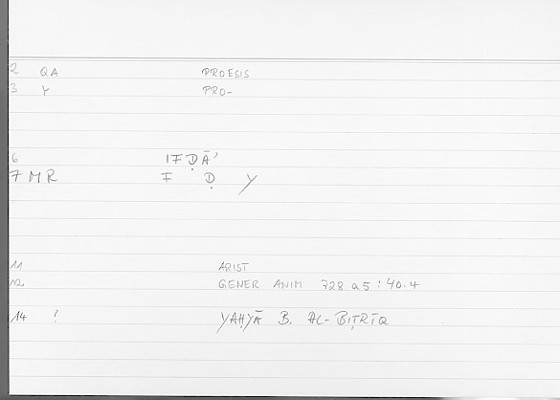 2 QA PROESIS
3 Y PRO-
6 IFḌĀʾ
7 MR F Ḍ Y
11 ARIST
12 GENER ANIM 728 a5 : 40.4
14 ? YAḤYĀ B. AL-BIṬRĪQ